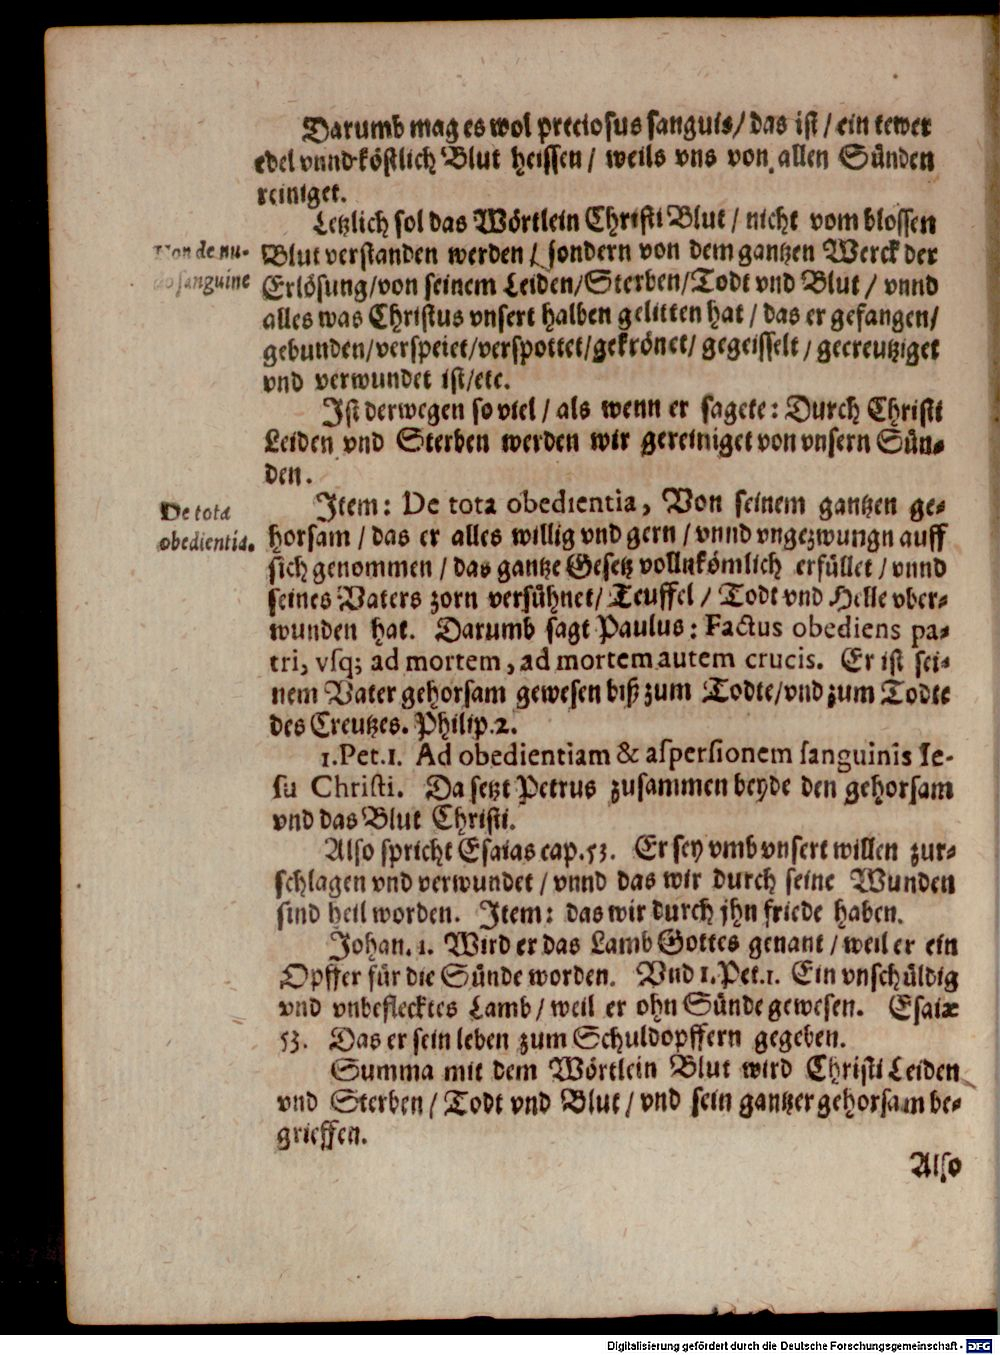 Darumb mag es wol preciosus sanguis/ das ist / ein tewer
edel vnnd köstlich Blut heissen / weils vns von allen Sünden
reiniget.
Letzlich sol das Wörtlein Christi Blut / nicht vom blossen
Non de nu-
Blut verstanden werden / sondern von dem gantzen Werck der
do sanguine
Erlösung/von seinem Leiden/Sterben/Todt vnd Blut / vnnd
alles was Christus vnsert halben gelitten hat / das er gefangen/
gebunden/verspeiet/verspottet/gekrönet/ gegeisselt / gecreutziget
vnd verwundet ist/etc.
Ist derwegen so viel / als wenn er sagete: Durch Christi
Leiden vnd Sterben werden wir gereiniget von vnsern Sün-
den.
De tota
Item: De tota obedientia, Von seinem gantzen ge-
obedientia.
horsam / das er alles willig vnd gern / vnnd vngezwungn auff
sich genommen / das gantze Gesetz vollnkömlich erfüllet / vnnd
seines Vaters zorn versühnet/ Teuffel / Todt vnd Helle vber-
wunden hat. Darumb sagt Paulus: Factus obediens pa-
tri, vsq; ad mortem, ad mortem autem crucis. Er ist sei-
nem Vater gehorsam gewesen biß zum Todte/vnd zum Todte
des Creutzes. Philip.2.
1.Pet.1. Ad obedientiam & aspersionem sanguinis Ie-
su Christi. Da setzt Petrus zusammen beyde den gehorsam
vnd das Blut Christi.
Also spricht Esaias cap.53. Er sey vmb vnsert willen zur-
schlagen vnd verwundet / vnnd das wir durch seine Wunden
sind heil worden. Item: das wir durch jhn friede haben.
Johan. 1. Wird er das Lamb Gottes genant / weil er ein
Opffer für die Sünde worden. Vnd 1.Pet.1. Ein vnschüldig
vnd vnbeflecktes Lamb / weil er ohn Sünde gewesen. Esaiæ
53. Das er sein leben zum Schuldopffern gegeben.
Summa mit dem Wörtlein Blut wird Christi Leiden
vnd Sterben / Todt vnd Blut / vnd sein gantzer gehorsam be-
grieffen.
Also
Digitalisierung gefördert durch die Deutsche Forschungsgemeinschaft - DFG